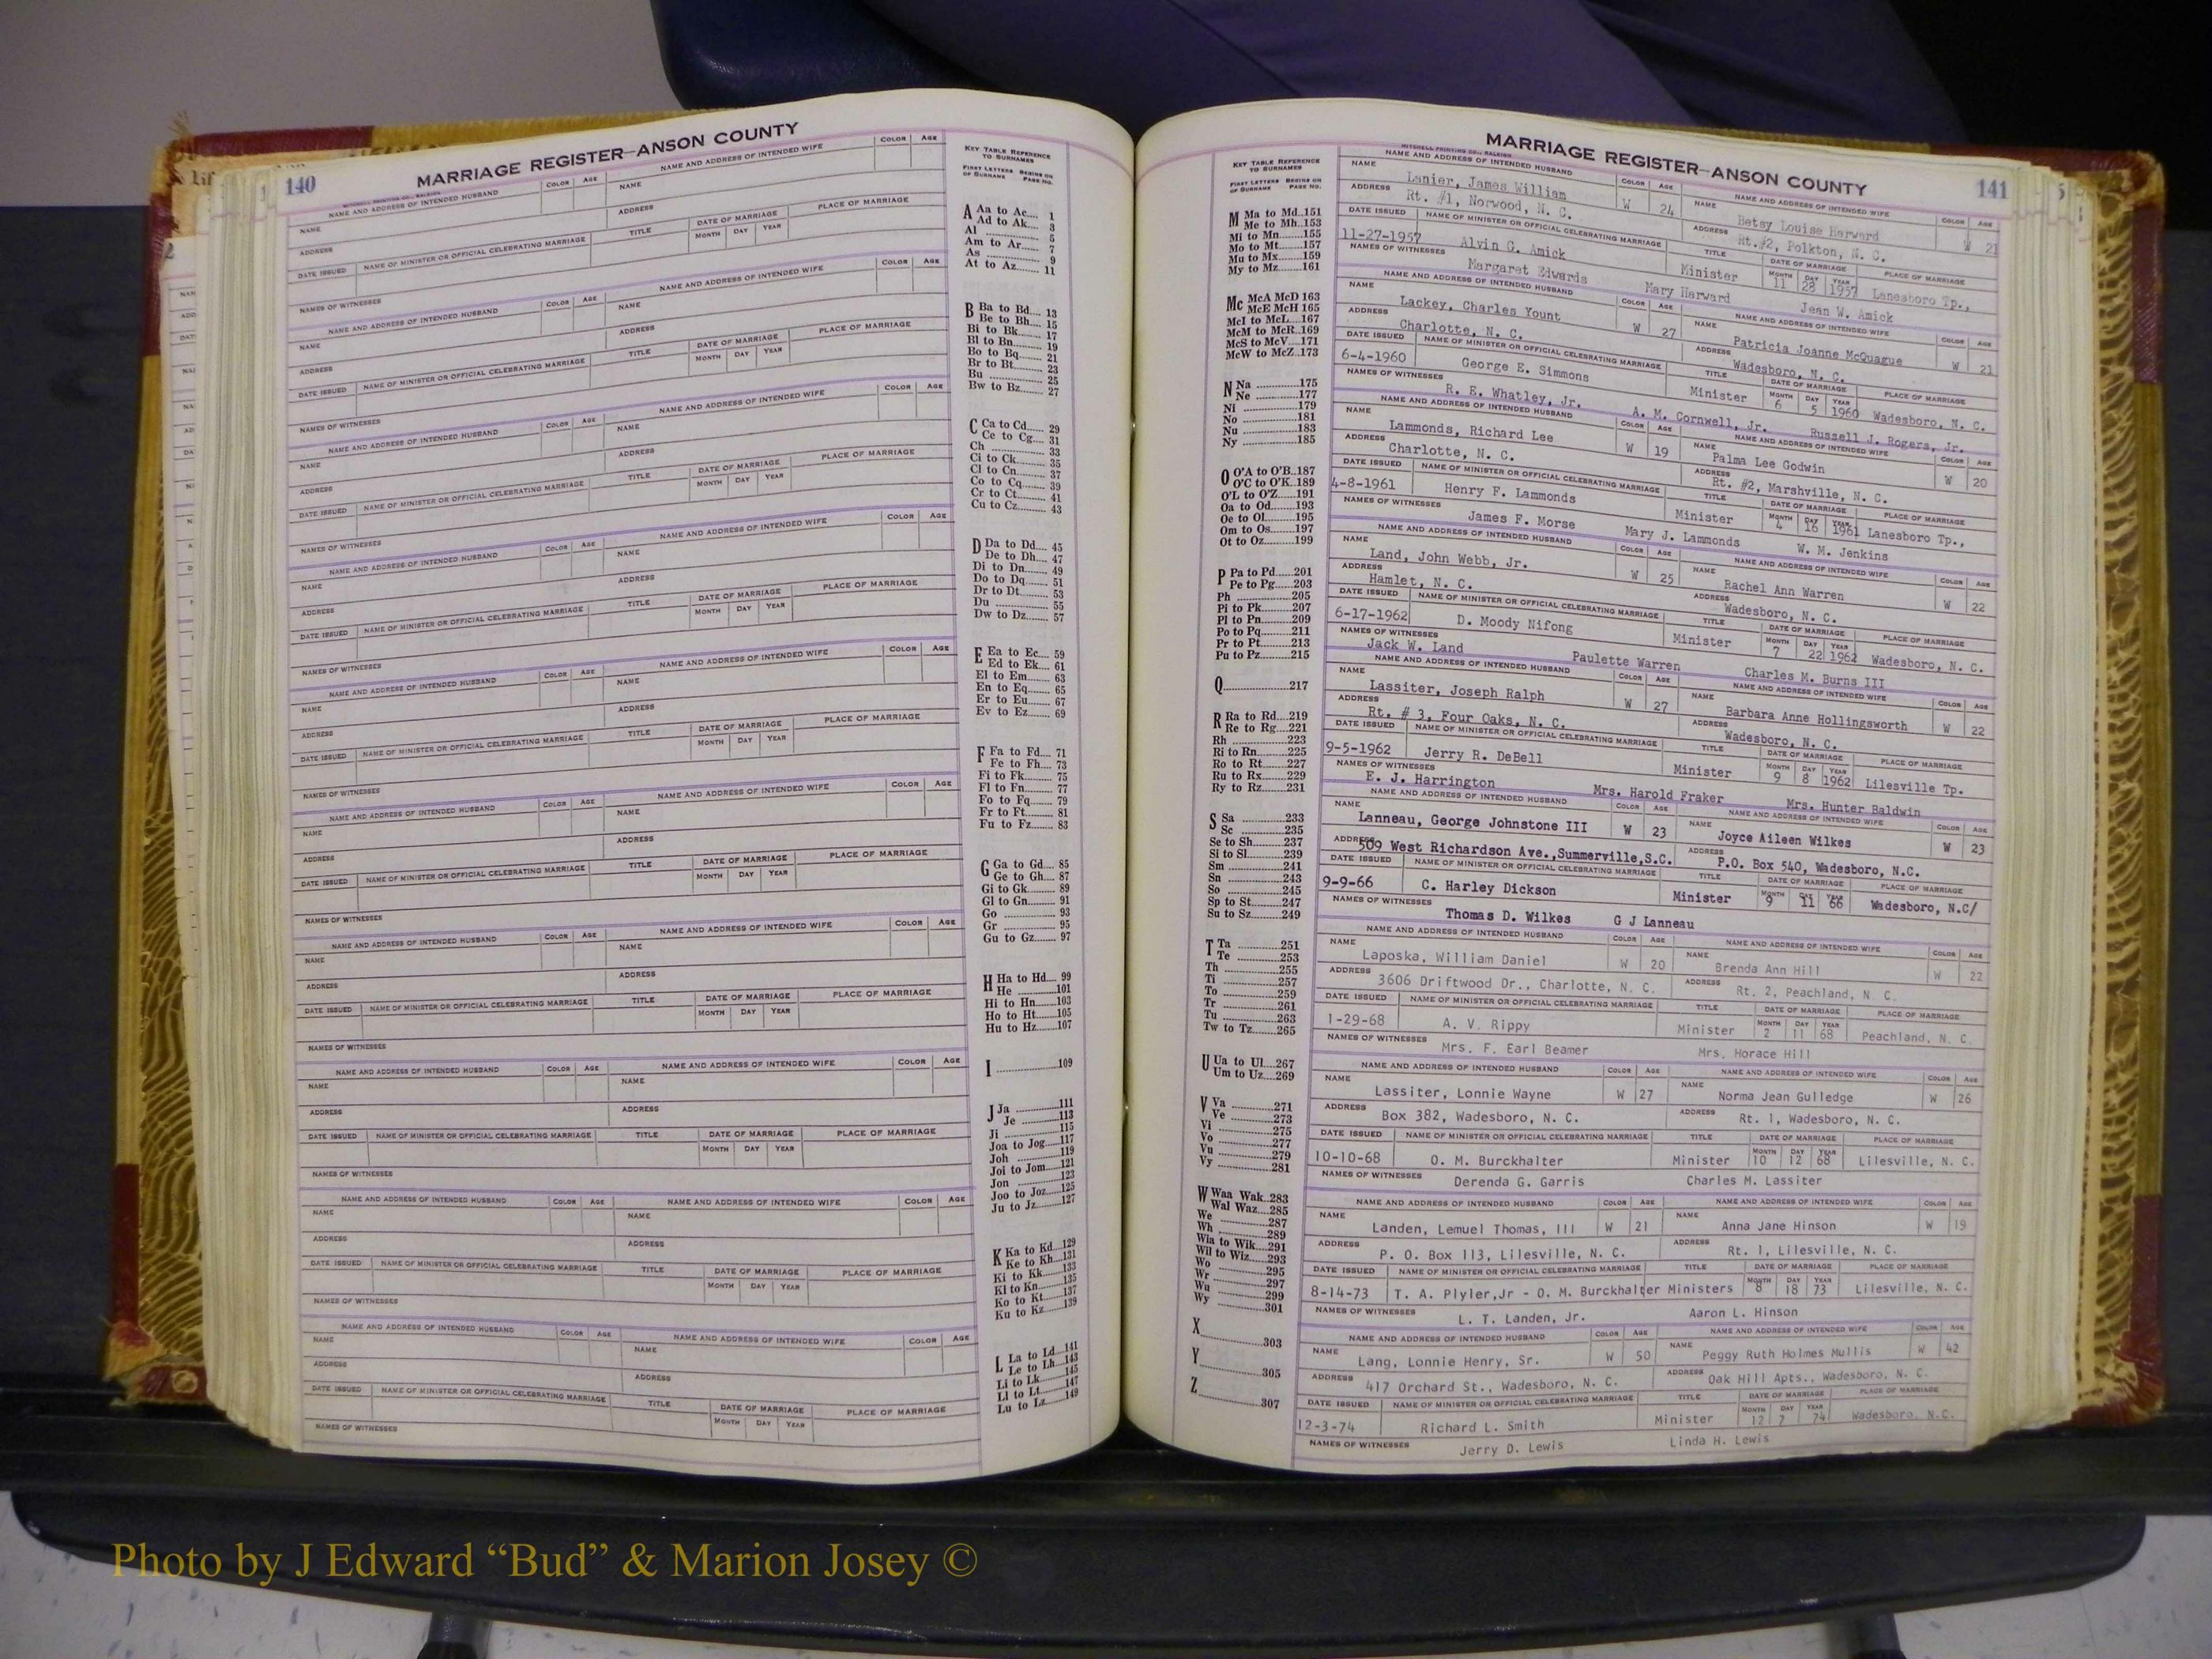 140
MARRIAGE REGISTER—ANSON COUNTY
MITCHELL PRINTING CO., RALEIGH
NAME AND ADDRESS OF INTENDED HUSBAND COLOR AGE NAME AND ADDRESS OF INTENDED WIFE COLOR AGE
NAME NAME
ADDRESS ADDRESS
DATE ISSUED NAME OF MINISTER OR OFFICIAL CELEBRATING MARRIAGE TITLE DATE OF MARRIAGE PLACE OF MARRIAGE
MONTH DAY YEAR
NAMES OF WITNESSES
KEY TABLE REFERENCE
TO SURNAMES
FIRST LETTERS OF SURNAME BEGINS ON PAGE NO.
A Aa to Ac.... 1
Ad to Ak.... 3
Al ............... 5
Am to Ar...... 7
As ............... 9
At to Az....... 11
B Ba to Bd.... 13
Be to Bh.... 15
Bi to Bk........ 17
Bl to Bn........ 19
Bo to Bq....... 21
Br to Bt........ 23
Bu ............... 25
Bw to Bz....... 27
C Ca to Cd...... 29
Ce to Cg.... 31
Ch ............... 33
Ci to Ck........ 35
Cl to Cn........ 37
Co to Cq....... 39
Cr to Ct........ 41
Cu to Cz....... 43
D Da to Dd.... 45
De to Dh.... 47
Di to Dn....... 49
Do to Dq....... 51
Dr to Dt........ 53
Du ............... 55
Dw to Dz....... 57
E Ea to Ec.... 59
Ed to Ek.... 61
El to Em....... 63
En to Eq....... 65
Er to Eu........ 67
Ev to Ez........ 69
F Fa to Fd.... 71
Fe to Fh.... 73
Fi to Fk........ 75
Fl to Fn........ 77
Fo to Fq....... 79
Fr to Ft........ 81
Fu to Fz....... 83
G Ga to Gd.... 85
Ge to Gh.... 87
Gi to Gk........ 89
Gl to Gn........ 91
Go ............... 93
Gr ............... 95
Gu to Gz....... 97
H Ha to Hd.... 99
He ............101
Hi to Hn.......103
Ho to Ht.......105
Hu to Hz.......107
I ......................109
J Ja ............111
Je ............113
Ji ...............115
Joa to Jog....117
Joh .............119
Joi to Jom....121
Jon .............123
Joo to Joz....125
Ju to Jz........127
K Ka to Kd....129
Ke to Kh....131
Ki to Kk.......133
Kl to Kn.......135
Ko to Kt.......137
Ku to Kz.......139
L La to Ld....141
Le to Lh....143
Li to Lk.......145
Ll to Lt.......147
Lu to Lz.......149
KEY TABLE REFERENCE
TO SURNAMES
FIRST LETTERS OF SURNAME BEGINS ON PAGE NO.
M Ma to Md..151
Me to Mh..153
Mi to Mn......155
Mo to Mt......157
Mu to Mx......159
My to Mz......161
Mc McA McD 163
McE McH 165
McI to McL....167
McM to McR..169
McS to McV...171
McW to McZ..173
N Na ............175
Ne ............177
Ni ..............179
No ..............181
Nu ..............183
Ny ..............185
O O'A to O'B..187
O'C to O'K..189
O'L to O'Z......191
Oa to Od.......193
Oe to Ol........195
Om to Os.......197
Ot to Oz........199
P Pa to Pd.....201
Pe to Pg....203
Ph ..............205
Pi to Pk........207
Pl to Pn........209
Po to Pq.......211
Pr to Pt........213
Pu to Pz.......215
Q......................217
R Ra to Rd....219
Re to Rg....221
Rh ..............223
Ri to Rn.......225
Ro to Rt.......227
Ru to Rx.......229
Ry to Rz.......231
S Sa ............233
Sc ............235
Se to Sh........237
Si to Sl.........239
Sm ..............241
Sn ..............243
So ..............245
Sp to St.........247
Su to Sz.........249
T Ta ............251
Te ............253
Th ..............255
Ti ..............257
To ..............259
Tr ..............261
Tu ..............263
Tw to Tz........265
U Ua to Ul....267
Um to Uz....269
V Va ............271
Ve ............273
Vi ..............275
Vo ..............277
Vu ..............279
Vy ..............281
W Waa Wak..283
Wal Waz....285
We ..............287
Wh ..............289
Wia to Wik....291
Wil to Wiz....293
Wo ..............295
Wr ..............297
Wu ..............299
Wy ..............301
X......................303
Y......................305
Z......................307
MARRIAGE REGISTER—ANSON COUNTY
141
NAME AND ADDRESS OF INTENDED HUSBAND COLOR AGE NAME AND ADDRESS OF INTENDED WIFE COLOR AGE
NAME Lanier, James William W 24 NAME Betsy Louise Harward W 21
ADDRESS Rt. #1, Norwood, N. C. ADDRESS Rt.#2, Polkton, N. C.
DATE ISSUED NAME OF MINISTER OR OFFICIAL CELEBRATING MARRIAGE TITLE DATE OF MARRIAGE PLACE OF MARRIAGE
11-27-1957 Alvin C. Amick Minister 11 28 1957 Lanesboro Tp.,
NAMES OF WITNESSES Margaret Edwards Mary Harward Jean W. Amick
NAME Lackey, Charles Yount W 27 NAME Patricia Joanne McQuague W 21
ADDRESS Charlotte, N. C. ADDRESS Wadesboro, N. C.
6-4-1960 George E. Simmons Minister 6 5 1960 Wadesboro, N. C.
NAMES OF WITNESSES R. E. Whatley, Jr. A. M. Cornwell, Jr. Russell J. Rogers, Jr.
NAME Lammonds, Richard Lee W 19 NAME Palma Lee Godwin W 20
ADDRESS Charlotte, N. C. ADDRESS Rt. #2, Marshville, N. C.
4-8-1961 Henry F. Lammonds Minister 4 16 1961 Lanesboro Tp.,
NAMES OF WITNESSES James F. Morse Mary J. Lammonds W. M. Jenkins
NAME Land, John Webb, Jr. W 25 NAME Rachel Ann Warren W 22
ADDRESS Hamlet, N. C. ADDRESS Wadesboro, N. C.
6-17-1962 D. Moody Nifong Minister 7 22 1962 Wadesboro, N. C.
NAMES OF WITNESSES Jack W. Land Paulette Warren Charles M. Burns III
NAME Lassiter, Joseph Ralph W 27 Barbara Anne Hollingsworth W 22
ADDRESS Rt. # 3, Four Oaks, N. C. ADDRESS Wadesboro, N. C.
9-5-1962 Jerry R. DeBell Minister 9 8 1962 Lilesville Tp.
NAMES OF WITNESSES E. J. Harrington Mrs. Harold Fraker Mrs. Hunter Baldwin
NAME Lanneau, George Johnstone III W 23 NAME Joyce Aileen Wilkes W 23
ADDRESS 509 West Richardson Ave.,Summerville,S.C. ADDRESS P.O. Box 540, Wadesboro, N.C.
9-9-66 C. Harley Dickson Minister 9 11 66 Wadesboro, N.C/
NAMES OF WITNESSES Thomas D. Wilkes G J Lanneau
NAME Laposka, William Daniel W 20 NAME Brenda Ann Hill W 22
ADDRESS 3606 Driftwood Dr., Charlotte, N. C. ADDRESS Rt. 2, Peachland, N. C.
1-29-68 A. V. Rippy Minister 2 11 68 Peachland, N. C.
NAMES OF WITNESSES Mrs. F. Earl Beamer Mrs. Horace Hill
NAME Lassiter, Lonnie Wayne W 27 NAME Norma Jean Gulledge W 26
ADDRESS Box 382, Wadesboro, N. C. ADDRESS Rt. 1, Wadesboro, N. C.
10-10-68 O. M. Burckhalter Minister 10 12 68 Lilesville, N. C.
NAMES OF WITNESSES Derenda G. Garris Charles M. Lassiter
NAME Landen, Lemuel Thomas, III W 21 NAME Anna Jane Hinson W 19
ADDRESS P. O. Box 113, Lilesville, N. C. ADDRESS Rt. 1, Lilesville, N. C.
8-14-73 T. A. Plyler,Jr - O. M. Burckhalter Ministers 8 18 73 Lilesville, N. C.
NAMES OF WITNESSES L. T. Landen, Jr. Aaron L. Hinson
NAME Lang, Lonnie Henry, Sr. W 50 NAME Peggy Ruth Holmes Mullis W 42
ADDRESS 417 Orchard St., Wadesboro, N. C. ADDRESS Oak Hill Apts., Wadesboro, N. C.
12-3-74 Richard L. Smith Minister 12 7 74 Wadesboro, N.C.
NAMES OF WITNESSES Jerry D. Lewis Linda H. Lewis
Photo by J Edward “Bud” & Marion Josey ©